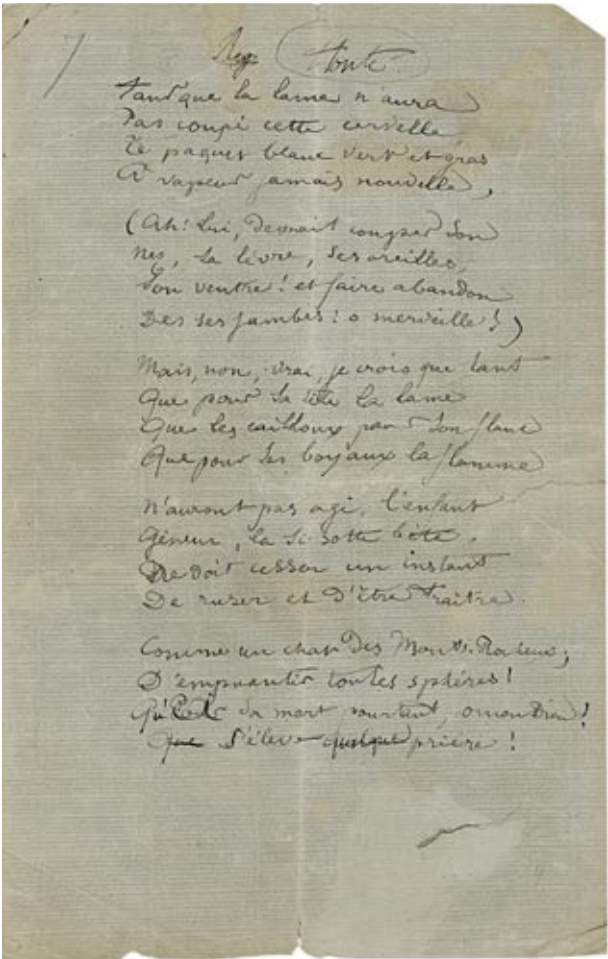 7
Honte.
Tant que la lame n'aura
Pas coupé cette cervelle,
Ce paquet blanc vert et gras
A vapeur jamais nouvelle,
(Ah! Lui, devrait couper son
Nez, sa lèvre, ses oreilles,
Son ventre! et faire abandon
Des ses jambes! o merveille!)
Mais, non, vrai, je crois que tant
Que pour sa tête la lame
Que les cailloux pour son flanc
Que pour ses boyaux la flamme
N'auront pas agi, l'enfant
Gêneur, la si sotte bête,
Ne doit cesser un instant
De ruser et d'être traître.
Comme un chat des Monts-Rocheux;
D'empuantir toutes sphères!
Qu'à sa mort pourtant, o mon Dieu!
S'élève quelque prière!